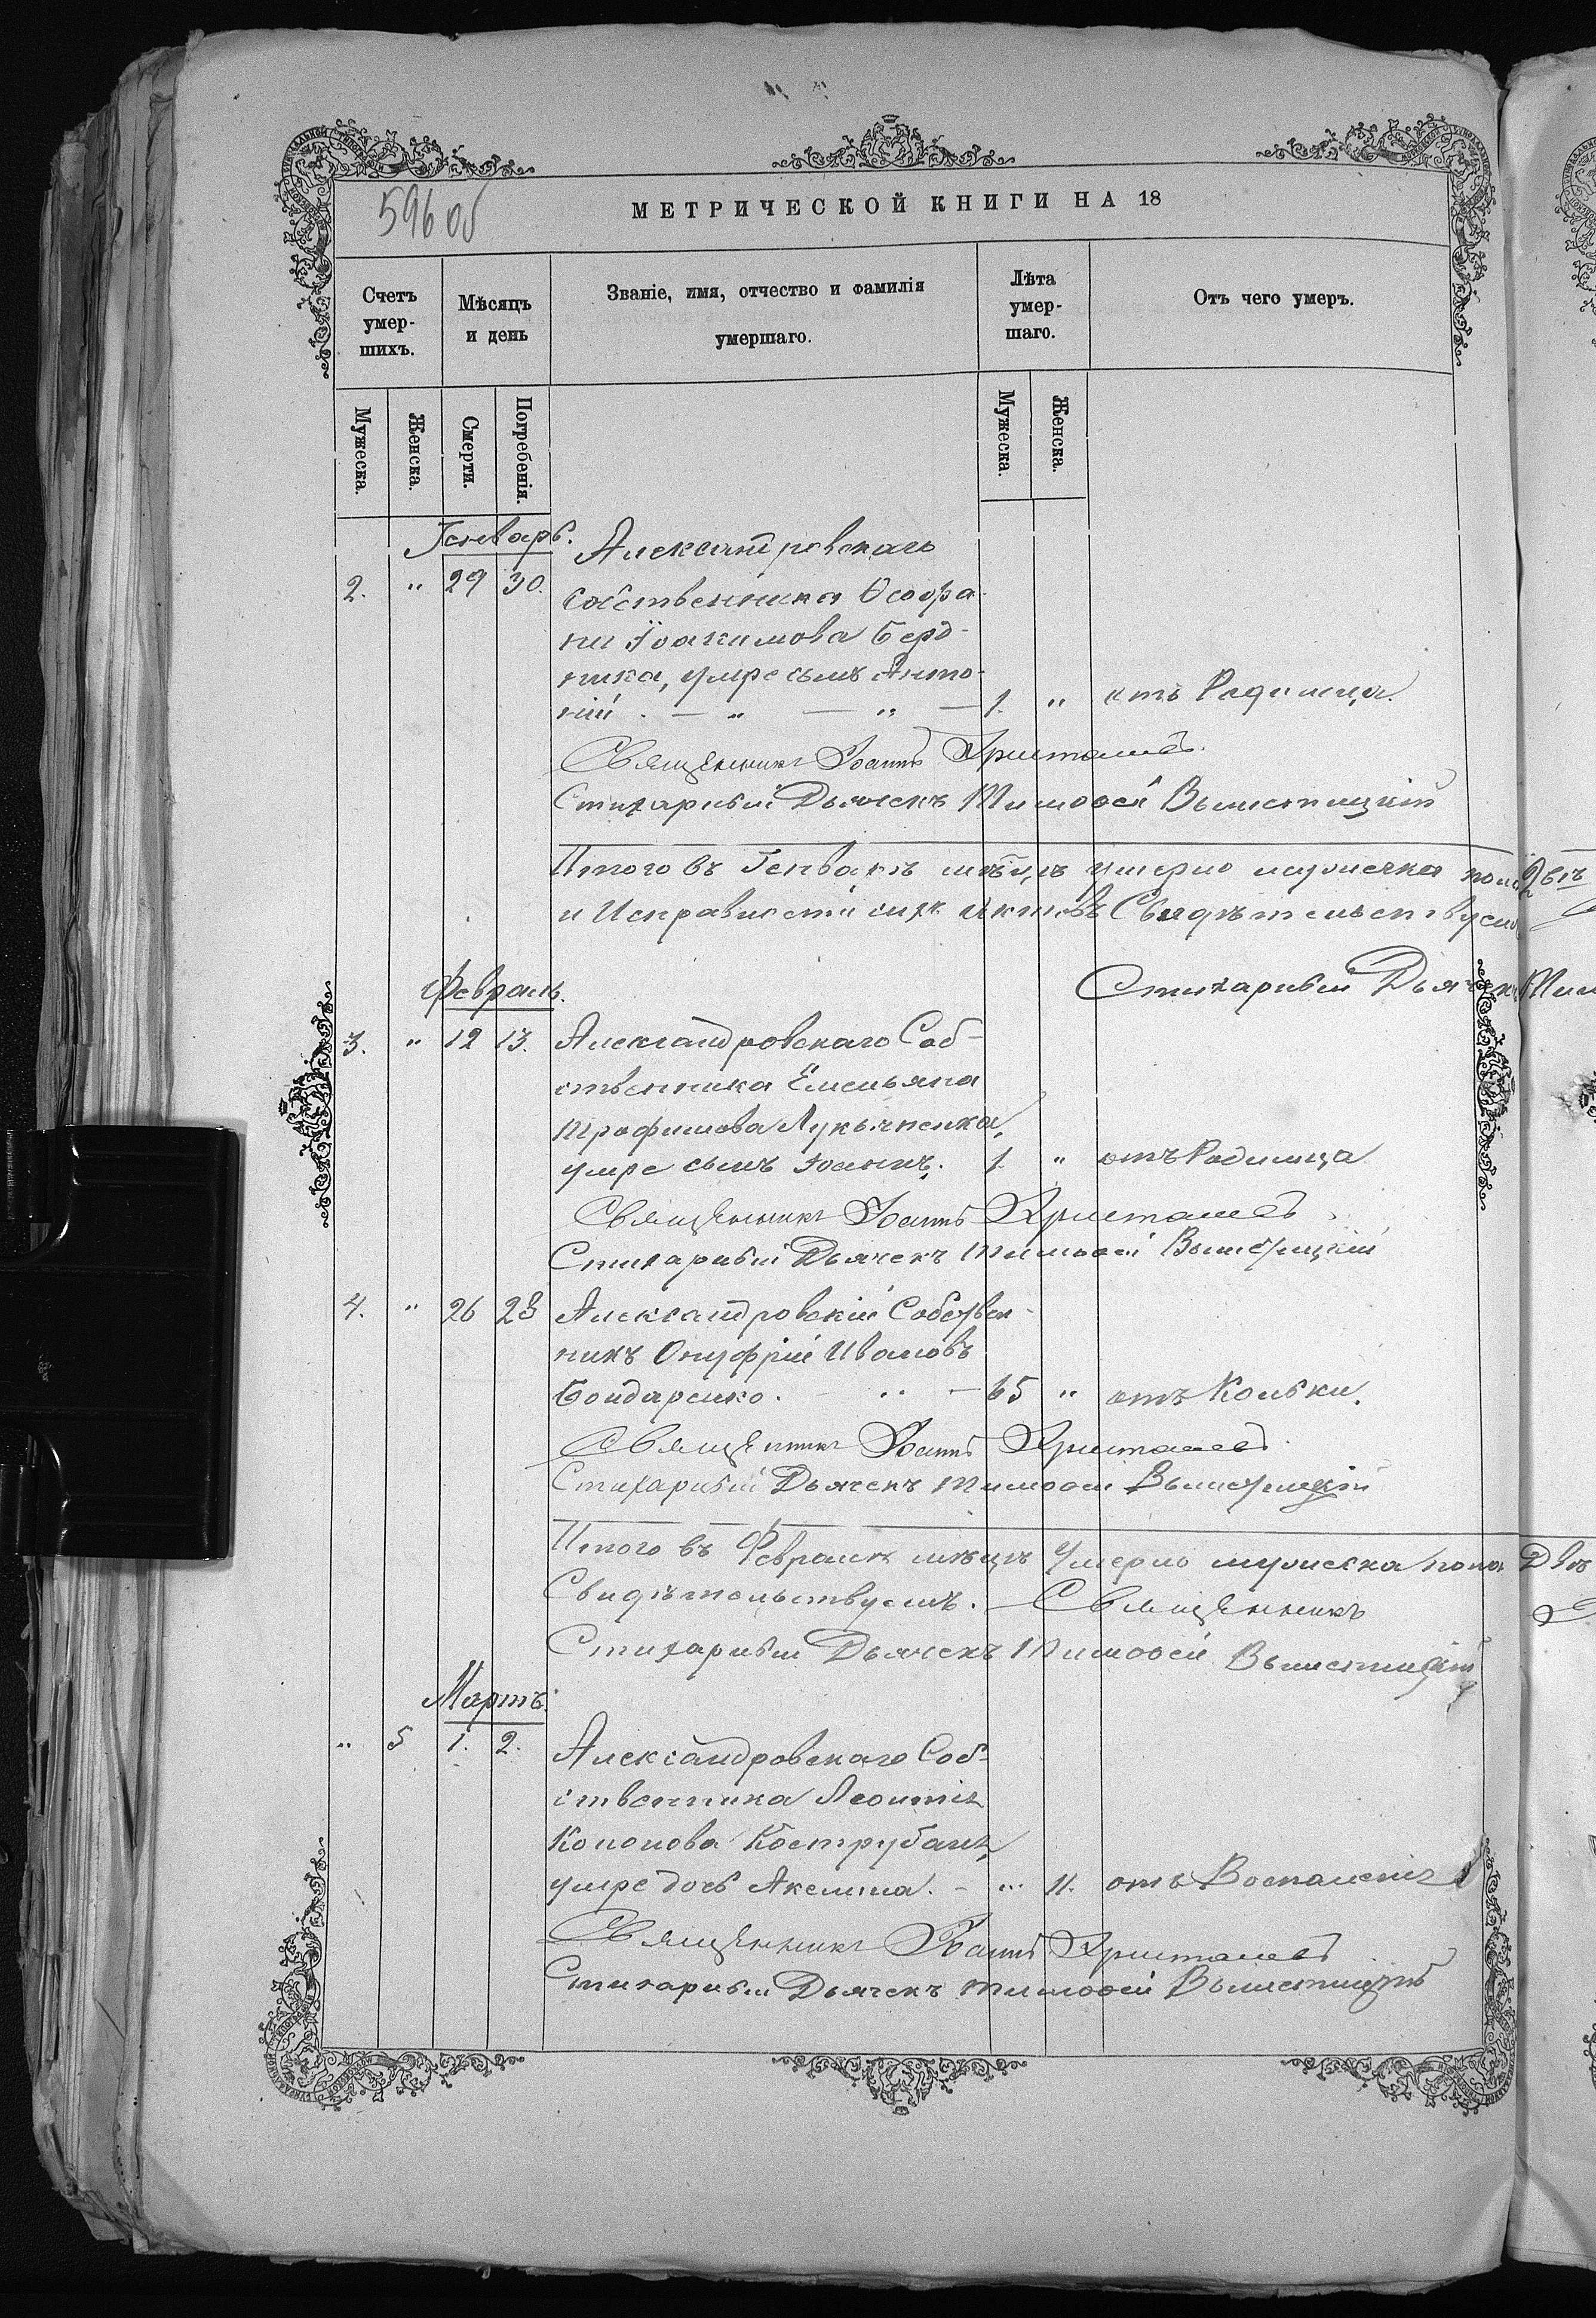 596 об
МЕТРИЧЕСКОЙ КНИГИ НА 18
Счетъ умер-шихъ.
Мѣсяцъ и день
Званіе, имя, отчество и фамилія умершаго.
Лѣта умер-шаго.
Отъ чего умеръ.
Мужеска.
Женска.
Смерти.
Погребенія.
Мужеска.
Женска.
Генварь.
Александровскаго
2. " 29 30. собственника Ѳеофа-
на Іоакимова Берд-
ника, умре сынъ Анто-
ній. — " — " — 1. " отъ Родимца.
Священникъ Іоаннъ
Стихарный Дьячекъ Тимоѳей
Итого въ Генварѣ мѣсяцѣ умерло мужеска пола Двѣ
и Исправности сихъ актовъ Свидѣтельствуемъ
Стихарный Дьячекъ Тим
Февраль.
3. " 12 13. Александровскаго Соб-
ственника Емельяна
Трофимова Лукьяненка,
умре сынъ Іоаннъ. 1. " отъ Родимца
Священникъ Іоаннъ
Стихарный Дьячекъ Тимоѳей
4. " 26 28 Александровскій Собствен-
никъ Онуфрій Ивановъ
Бондаренко. — " — 65 " отъ Кольки.
Священникъ Іоаннъ
Стихарный Дьячекъ Тимоѳей
Итого въ Февралѣ мѣсяцѣ Умерло мужеска пола Двѣ
Свидѣтельствуемъ. — Священникъ
Стихарный Дьячекъ Тимоѳей
Мартъ.
" 5 1. 2. Александровскаго Соб-
ственника Леонтія
Кононова Кострубана,
умре дочь Акелина. — " 11. отъ Воспаленія
Священникъ Іоаннъ
Стихарный Дьячекъ Тимоѳей